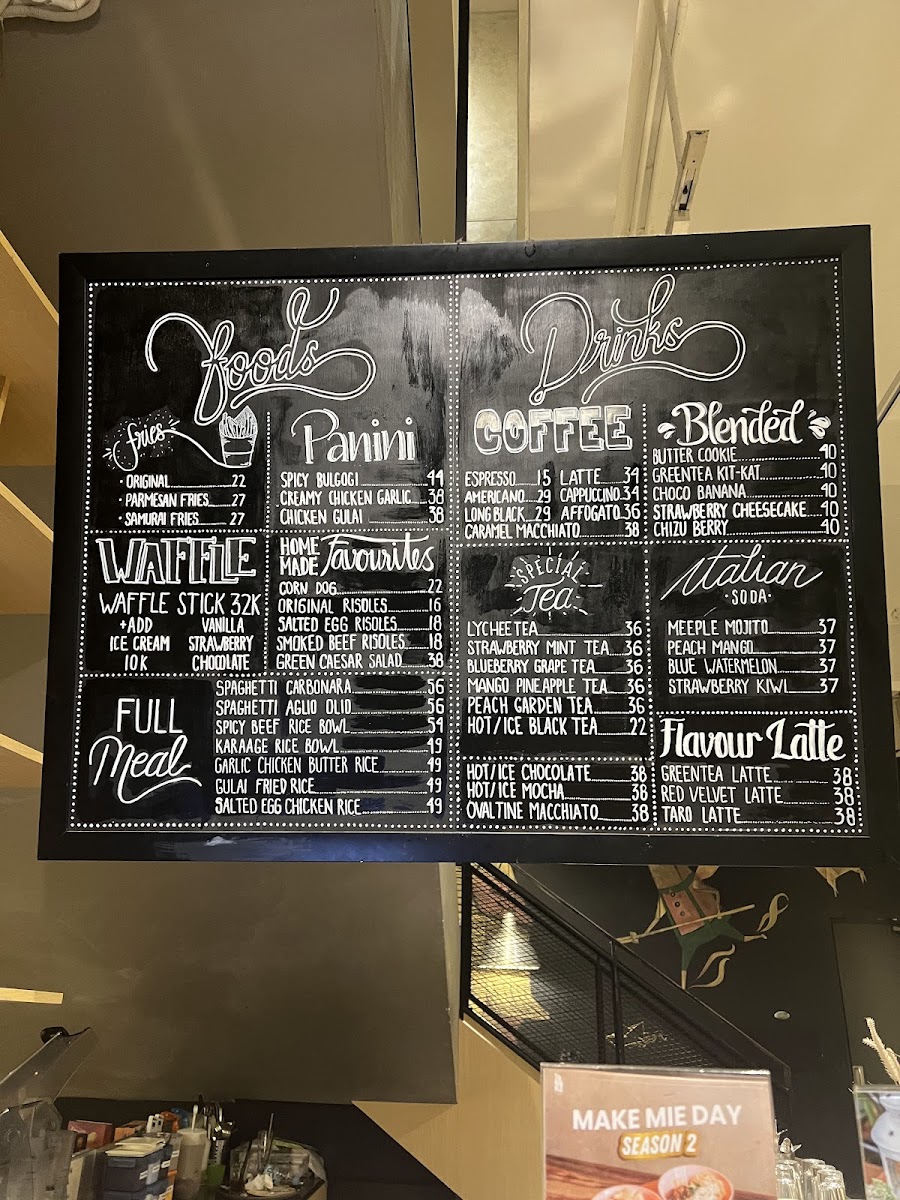 Foods
fries
· ORIGINAL 22
· PARMESAN FRIES 27
· SAMURAI FRIES 27
Panini
SPICY BULGOGI 44
CREAMY CHICKEN GARLIC 38
CHICKEN GULAI 38
WAFFLE
WAFFLE STICK 32K
+ADD VANILLA
ICE CREAM STRAWBERRY
10K CHOCOLATE
HOME MADE Favourites
CORN DOG 22
ORIGINAL RISOLES 16
SALTED EGG RISOLES 18
SMOKED BEEF RISOLES 18
GREEN CAESAR SALAD 38
FULL
Meal
SPAGHETTI CARBONARA 56
SPAGHETTI AGLIO OLIO 56
SPICY BEEF RICE BOWL 54
KARAAGE RICE BOWL 49
GARLIC CHICKEN BUTTER RICE 49
GULAI FRIED RICE 49
SALTED EGG CHICKEN RICE 49
Drinks
COFFEE
ESPRESSO 15 LATTE 34
AMERICANO 29 CAPPUCINO 34
LONG BLACK 29 AFFOGATO 36
CARAMEL MACCHIATO 38
Blended
BUTTER COOKIE 40
GREENTEA KIT-KAT 40
CHOCO BANANA 40
STRAWBERRY CHEESECAKE 40
CHIZU BERRY 40
SPECIAL
Tea
LYCHEE TEA 36
STRAWBERRY MINT TEA 36
BLUEBERRY GRAPE TEA 36
MANGO PINEAPPLE TEA 36
PEACH GARDEN TEA 36
HOT/ICE BLACK TEA 22
Italian
· SODA ·
MEEPLE MOJITO 37
PEACH MANGO 37
BLUE WATERMELON 37
STRAWBERRY KIWI 37
HOT/ICE CHOCOLATE 38
HOT/ICE MOCHA 38
OVALTINE MACCHIATO 38
Flavour Latte
GREENTEA LATTE 38
RED VELVET LATTE 38
TARO LATTE 38
MAKE MIE DAY
SEASON 2